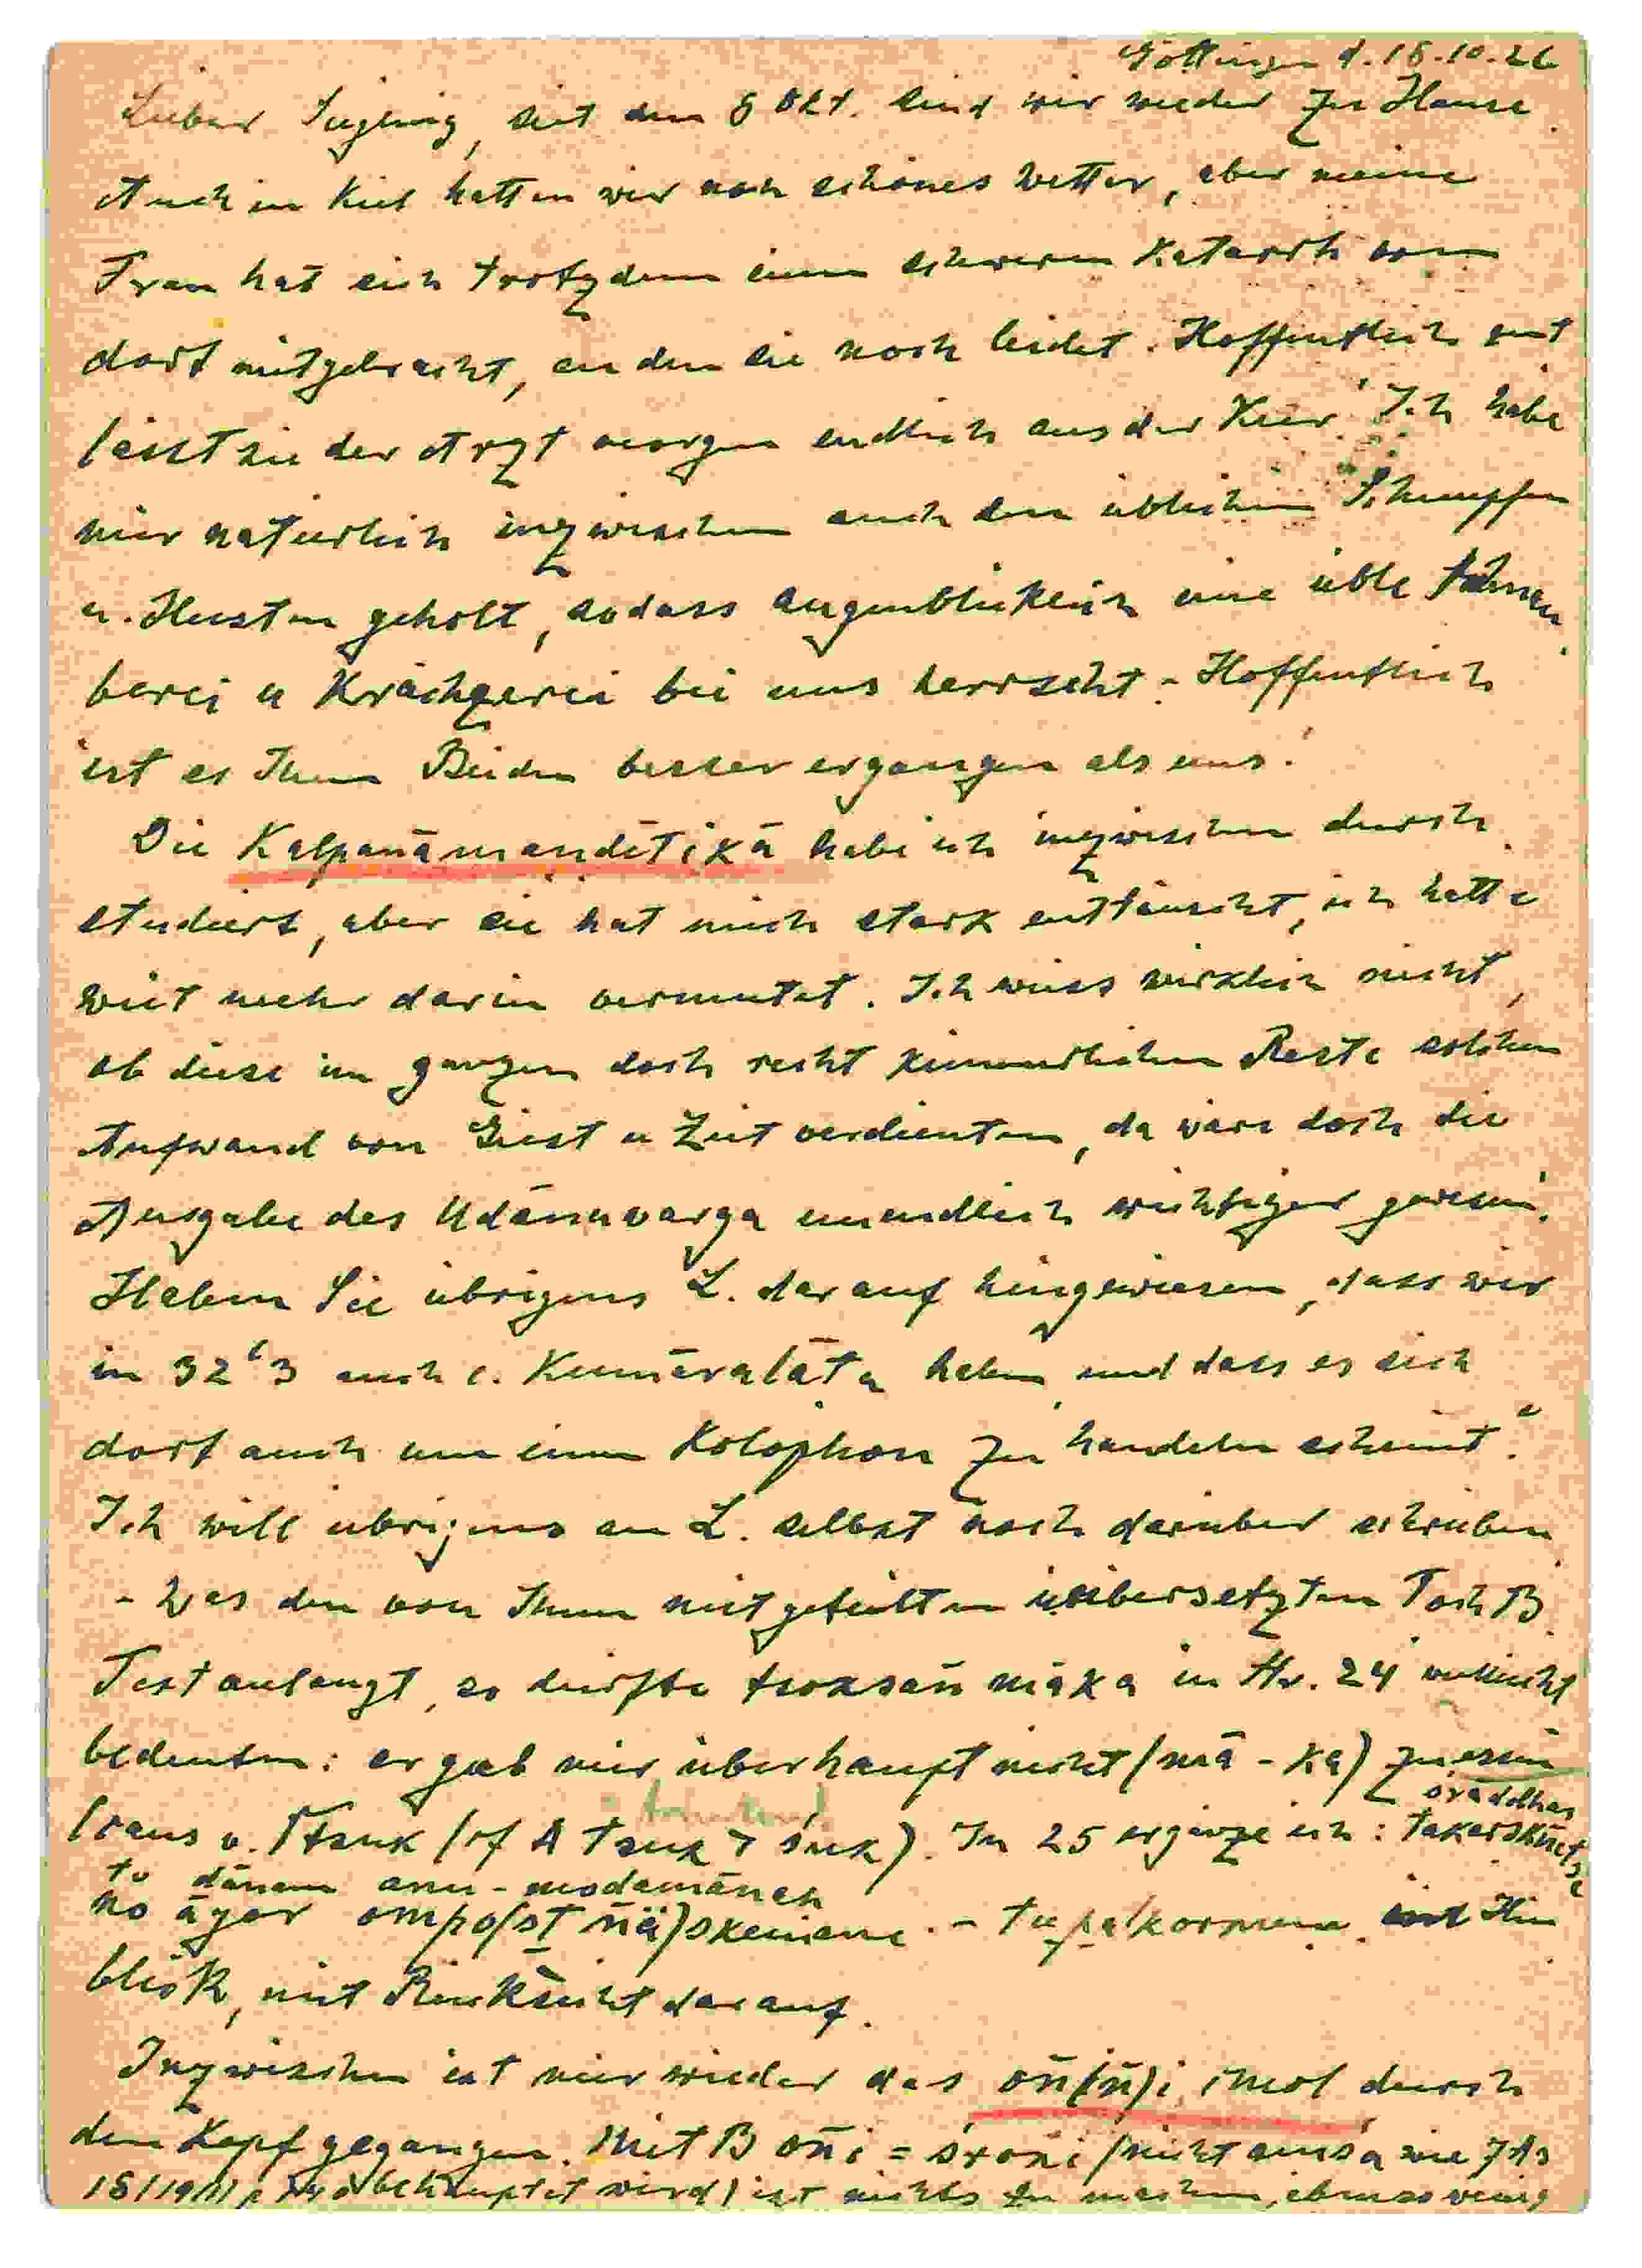 Göttingen d. 18.10.26
Lieber Siegling, seit dem 8 Okt. sind wir wieder zu Hause.
Auch in Kiel hatten wir noch schönes Wetter, aber meine
Frau hat sich trotzdem einen schweren Katarrh von
dort mitgebracht, an dem sie noch leidet. Hoffentlich
lässt sie der Arzt morgen endlich aus der Kur. Ich habe
mir natürlich inzwischen auch den üblichen Schnupfen
u. Husten geholt, sodass augenblicklich eine üble
berei u Krächzerei bei uns herrscht - Hoffentlich
ist es Ihnen Beiden besser ergangen als uns.
Die Kalpanāmaṇḍitikā habe ich inzwischen durch
studiert, aber sie hat mich stark enttäuscht, ich hatte
weit mehr darin vermutet. Ich weiss wirklich nicht,
ob diese im ganzen doch recht kümmerlichen Reste solchen
Aufwand von Geist u Zeit verdienten, da wäre doch die
Ausgabe des Udānavarga unendlich wichtiger gewesen.
Haben Sie übrigens L. darauf hingewiesen, dass wir
in 32 3 auch e. Kumāralāta haben und dass es sich
dort auch um einen Kolophon zu handeln scheint?
Ich will übrigens an L. selbst noch darüber schreiben.
- Was den von Ihnen mitgeteilten übersetzten Toch B
Text anlangt, so dürfte tsoksañ māka in Nr. 24 vielleicht
bedeuten: er gab mir überhaupt nicht (mā - ka) zu essen
(caus v. √tsuk (cf A tsuk > śuk). In 25 ergänze ich: takarṣkñetse
śrāddhas
to dānam anu-modamānaḥ
no āyor ompo(st ñä)skemane. - Hin
blick, mit Rücksicht darauf.
Inzwischen ist mir wieder das oñ(ñ)i cmol durch
den Kopf gegangen. Mit B oñi = śroṇi (nicht aṃsa wie JAs
behauptet wird) ist nichts zu machen, ebenso wenig